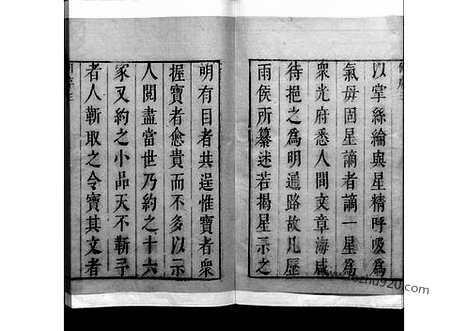 以掌絲綸與星精呼吸為
氣毋固星謫者謫一星為
衆光府悉人間文章海咸
待挹之為明通路故凡歷
雨侯所纂述若揭星示之
明有目者共逞惟寳者衆
握寳者愈貴而不多以示
人閲盡當世乃約之十六
家又約之小品天不靳予
者人靳取之令寳其文者